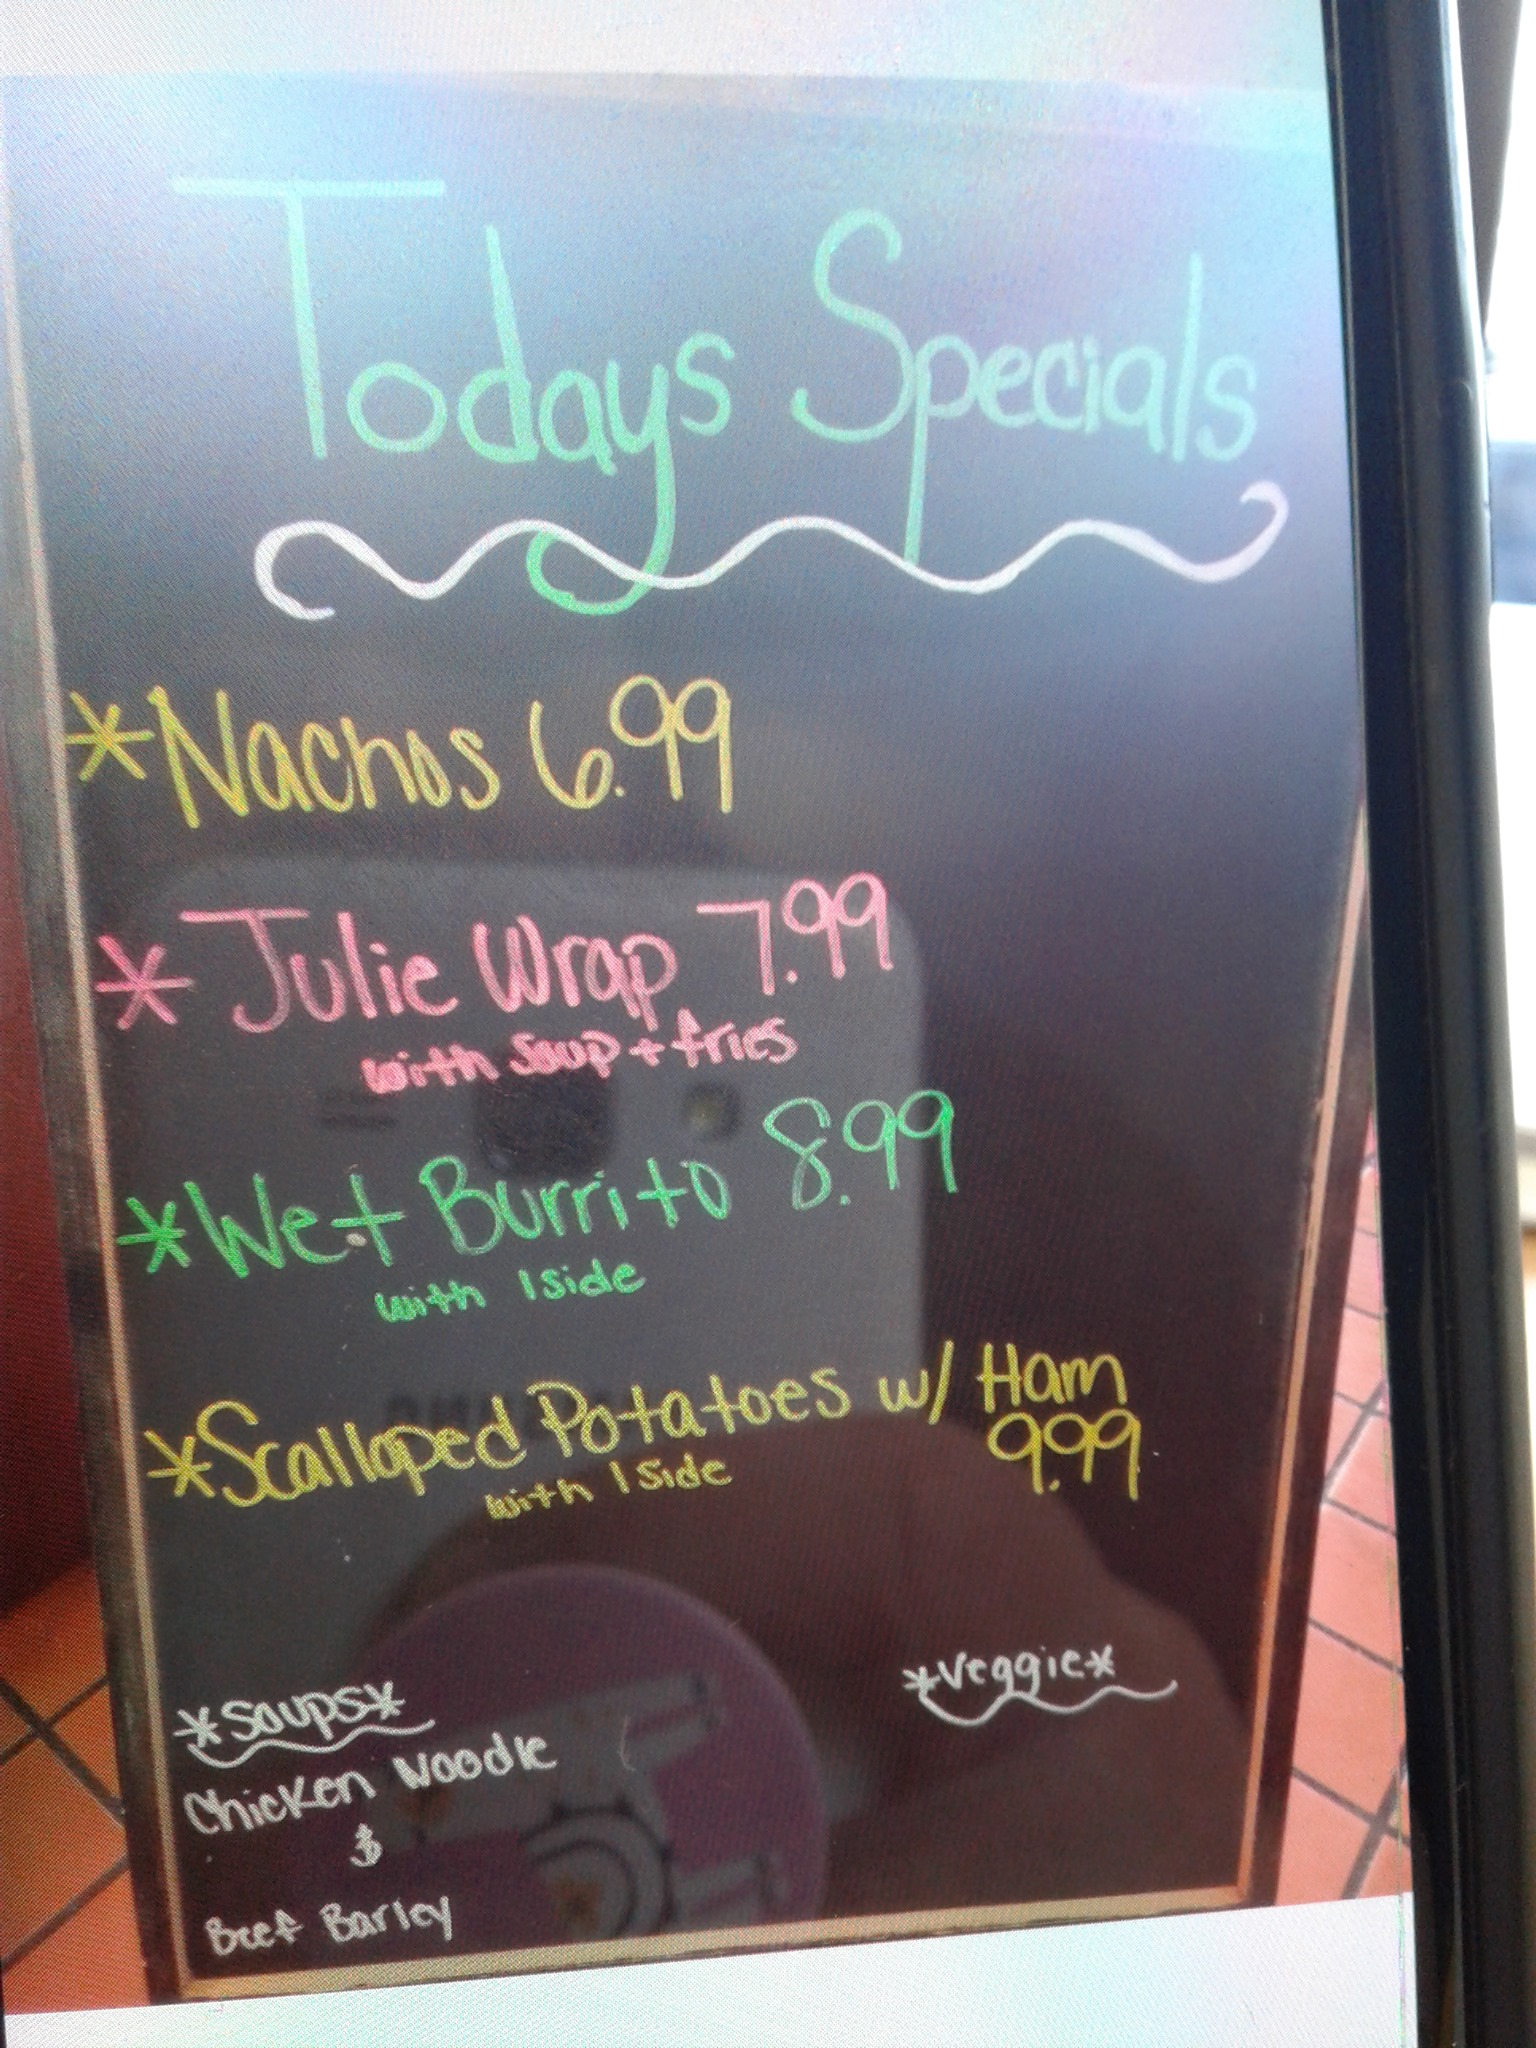 Todays Specials
*Nachos 6.99
*Julie Wrap 7.99
with Soup + fries
*Wet Burrito 8.99
with 1 side
*Scalloped Potatoes w/ Ham
9.99
with 1 side
*Soups*
*Veggie*
Chicken Noodle
&
Beef Barley